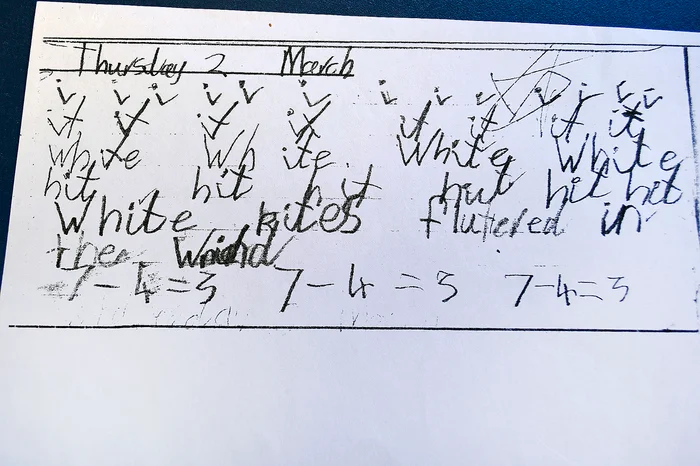 Thursday 2 March
i i i i i i i i i i i i i
it it it it it it it it
white white White White
hit hit hit hit hit hit
White kites fluttered in
the
7-4=3 7-4=3 7-4=3